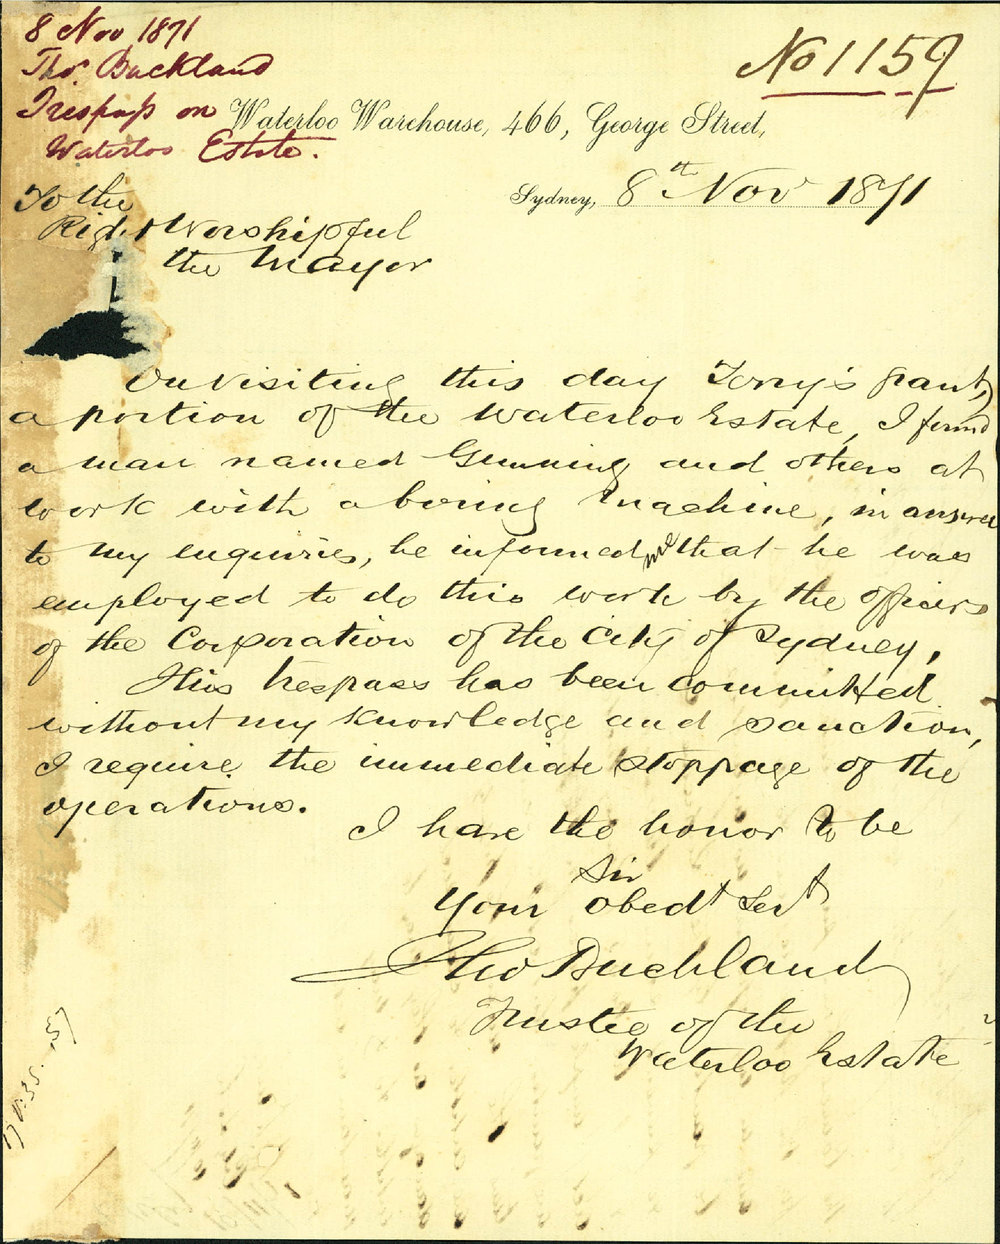 8 Nov 1871
Thos. Buckland
Trespass on
Waterloo Estate.
No 1159
Waterloo Warehouse, 466, George Street,
Sydney, 8th Nov 1871
To the
Right Worshipful
the Mayor
On visiting this day Terry's grant,
a portion of the Waterloo Estate, I found
a man named Gunning and others at
work with a boring machine, in answer
to my enquiries, he informed me that he was
employed to do this work by the officers
of the Corporation of the City of Sydney,
This trespass has been committed
without my knowledge and sanction,
I require the immediate stoppage of the
operations.
I have the honor to be
Sir
Your Obedt Servt
Thos Buckland
Trustee of the
Waterloo Estate